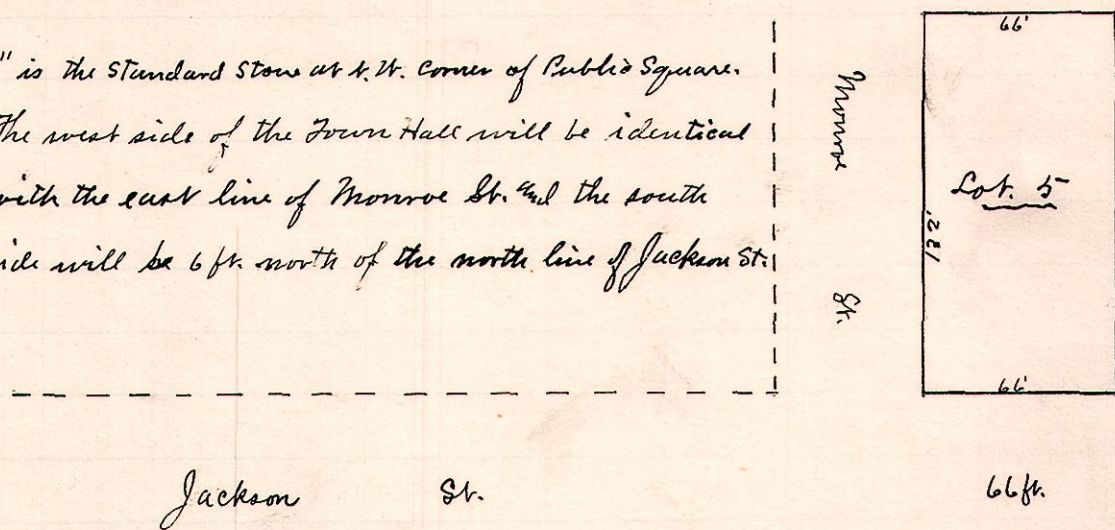 " is the Standard Stone at N.W. Corner of Public Square.
The west side of the Town Hall will be identical
with the east line of Monroe St. and the south
ide will be 6 ft. north of the north line of Jackson St.
Monroe St.
66'
Lot. 5
182'
66'
Jackson St.
66 ft.